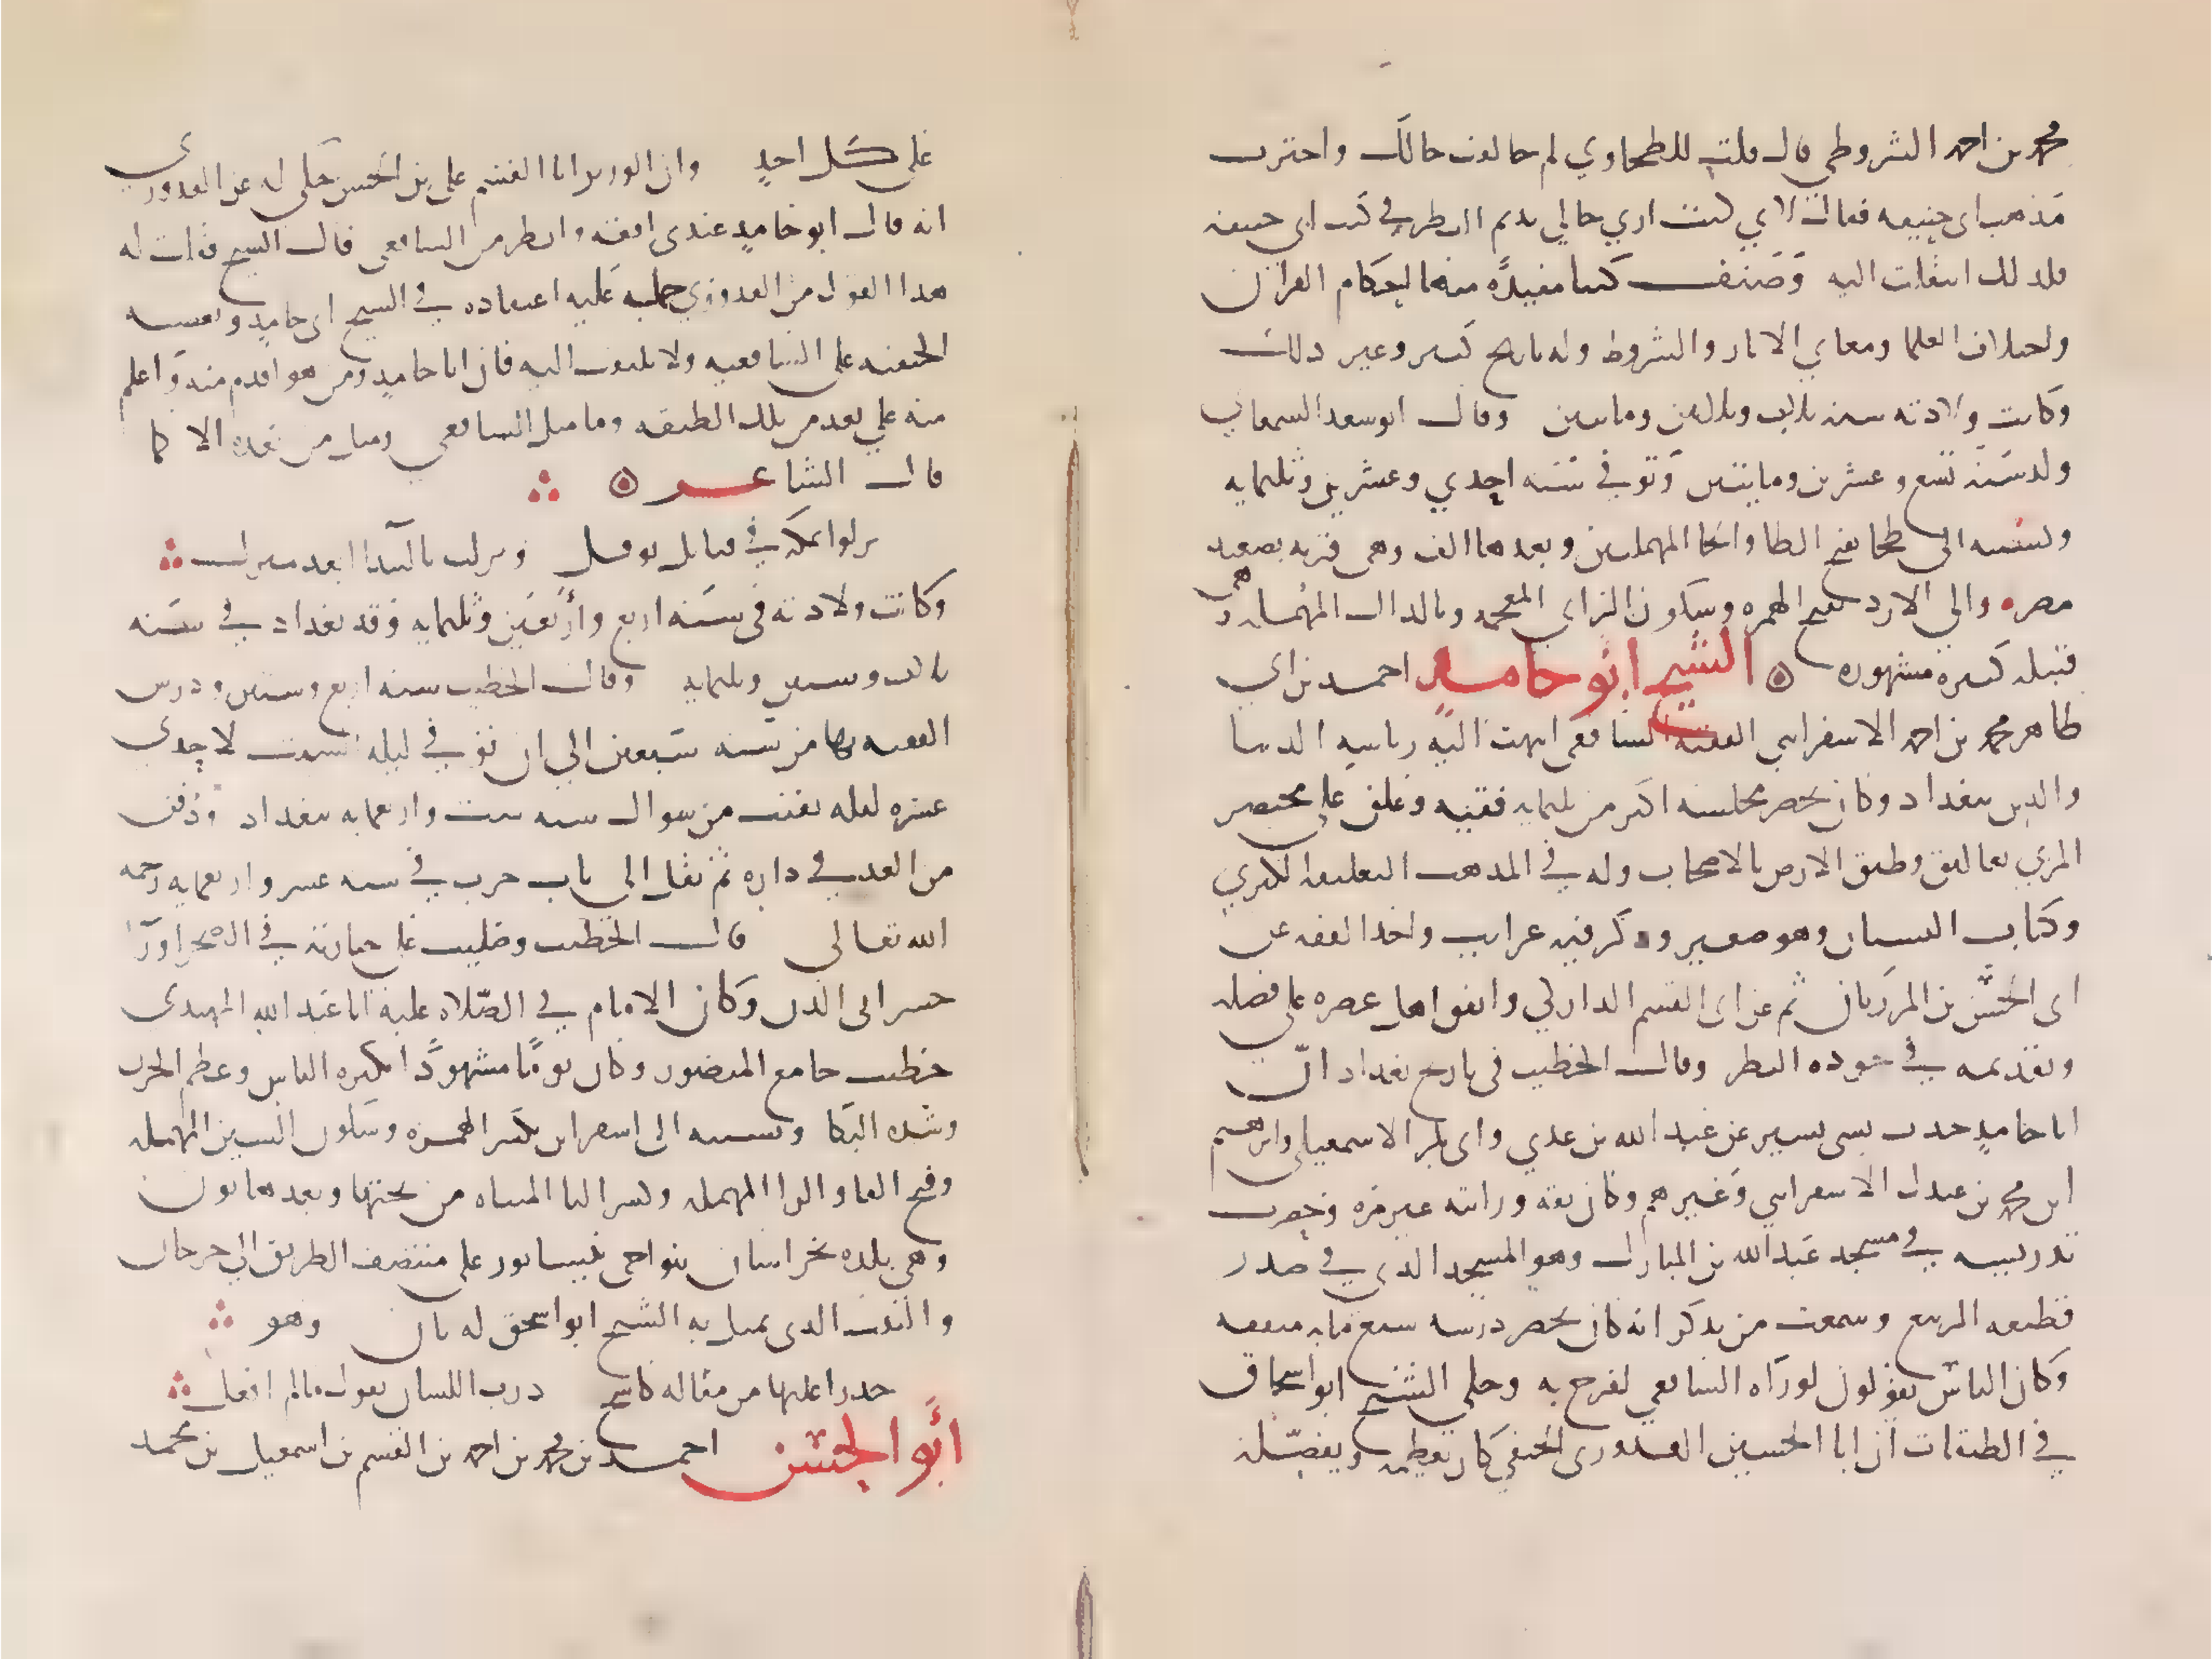 محمد بن احمد الشروطي قال قلت للطحاوي لم خالفت خالك واخترت
مذهب ابي حنيفه فقال لاني كنت اري خالي يديم النظر في كتب ابي حنيفه
فلذلك انتقلت اليه وصنف كتبا مفيدة منها احكام القران
واختلاف العلما ومعاني الاثار والشروط وله تاريخ كبير وغير ذلك
وكانت ولادته سنه ثلاث وثلاثين وماتين وقال ابو سعد السمعاني
ولد سنة تسع وعشرين ومايتين وتوفي سنه احدي وعشرين وثلثمايه
ونسبته الى طحا بفتح الطا والحا المهملتين وبعدها الف وهى قريه بصعيد
مصر والي الازد بفتح الهمزه وسكون الزاي المعجمه وبالدال المهمله وهى
قبيله كبيره مشهوره الشيخ ابو حامد احمد بن ابي
طاهر محمد بن احمد الاسفرايني الفقيه الشافعى انتهت اليه رياسه الدنيا
والدين ببغداد وكان يحضر مجلسه اكثر من ثلثمايه فقيه وعلق علي مختصر
المزني تعاليق وطبق الارض بالاصحاب وله في المذهب التعليقه الكبري
وكتاب البستان وهو صغير وذكر فيه غرايب واخذ الفقه عن
ابى الحسن بن المرزبان ثم عن ابى القسم الداركي واتفق اهل عصره على فضله
وتقديمه في جوده النظر وقال الخطيب فى تاريخ بغداد انّ
ابا حامد حدث بشى يسير عن عبد الله بن عدي وابى بكر الاسمعيلى وابرهيم
ابن محمد بن عبدل الاسفرايني وغيرهم وكان ثقه ورايته غير مره وحضرت
تدريسه في مسجد عبد الله بن المبارك وهو المسجد الذي في صدر
قطيعه الربيع وسمعت من يذكر انه كان يحضر درسه سبع مايه متفقه
وكان الناس يقولون لو رآه الشافعي لفرح به وحكي الشيخ ابو اسحاق
في الطبقات ان ابا الحسين القدورى الحنفي كان يعظمه ويفضّله
على كل احد وان الوزير ابا القسم على بن الحسن حكى له عن القدوري
انه قال ابو حامد عندى افقه وانظر من الشافعى قال الشيخ فقلت له
هذا القول من القدوري حمله عليه اعتقاده في الشيخ ابى حامد وتعصبه
الحنفيه على الشافعيه ولا يلتفت اليه فان ابا حامد ومن هو اقدم منه واعلم
منه علي بعد من تلك الطبقه وما مثل الشافعي ومثل من بعده الا كما
قال الشاعر
نزلوا بمكه في قبايل نوفل ونزلت بالبيدا ابعد منزل
وكانت ولادته فى سنه اربع وأربعين وثلثمايه وقدم بغداد في سنه
ثلاث وستين وثلثمايه وقال الخطيب سنه اربع وستين ودرس
الفقه بها من سنه سبعين الي ان توفي في ليله السبت لاحدي
عشره ليله بقيت من شوال سنه ست واربعمايه ببغداد ودفن
من الغد في داره ثم نقل الى باب حرب في سنه عشر واربعمايه رحمه
الله تعالي قال الخطيب وصليت على جنازته في الصحرا ورآ
جسر ابى الدن وكان الامام في الصّلاه عليه ابا عبد الله المهتدى
خطيب جامع المنصور وكان يومًا مشهودًا بكثره الناس وعظم الحزن
وشده البكا ونسبته الى اسفراين بكسر الهمزه وسكون السين المهمله
وفتح الفا والرا المهمله وكسر اليا المثناه من تحتها وبعدها نون
وهى بلده بخراسان بنواحى نيسابور على منتصف الطريق الي جرجان
والبيت الذى تمثل به الشيخ ابو اسحق له ثان وهو
حذرا عليها من مقاله كاشح ذرب اللسان يقول ما لم افعل
أبو الحسن احمد بن محمد بن احمد بن القسم بن اسمعيل بن محمد